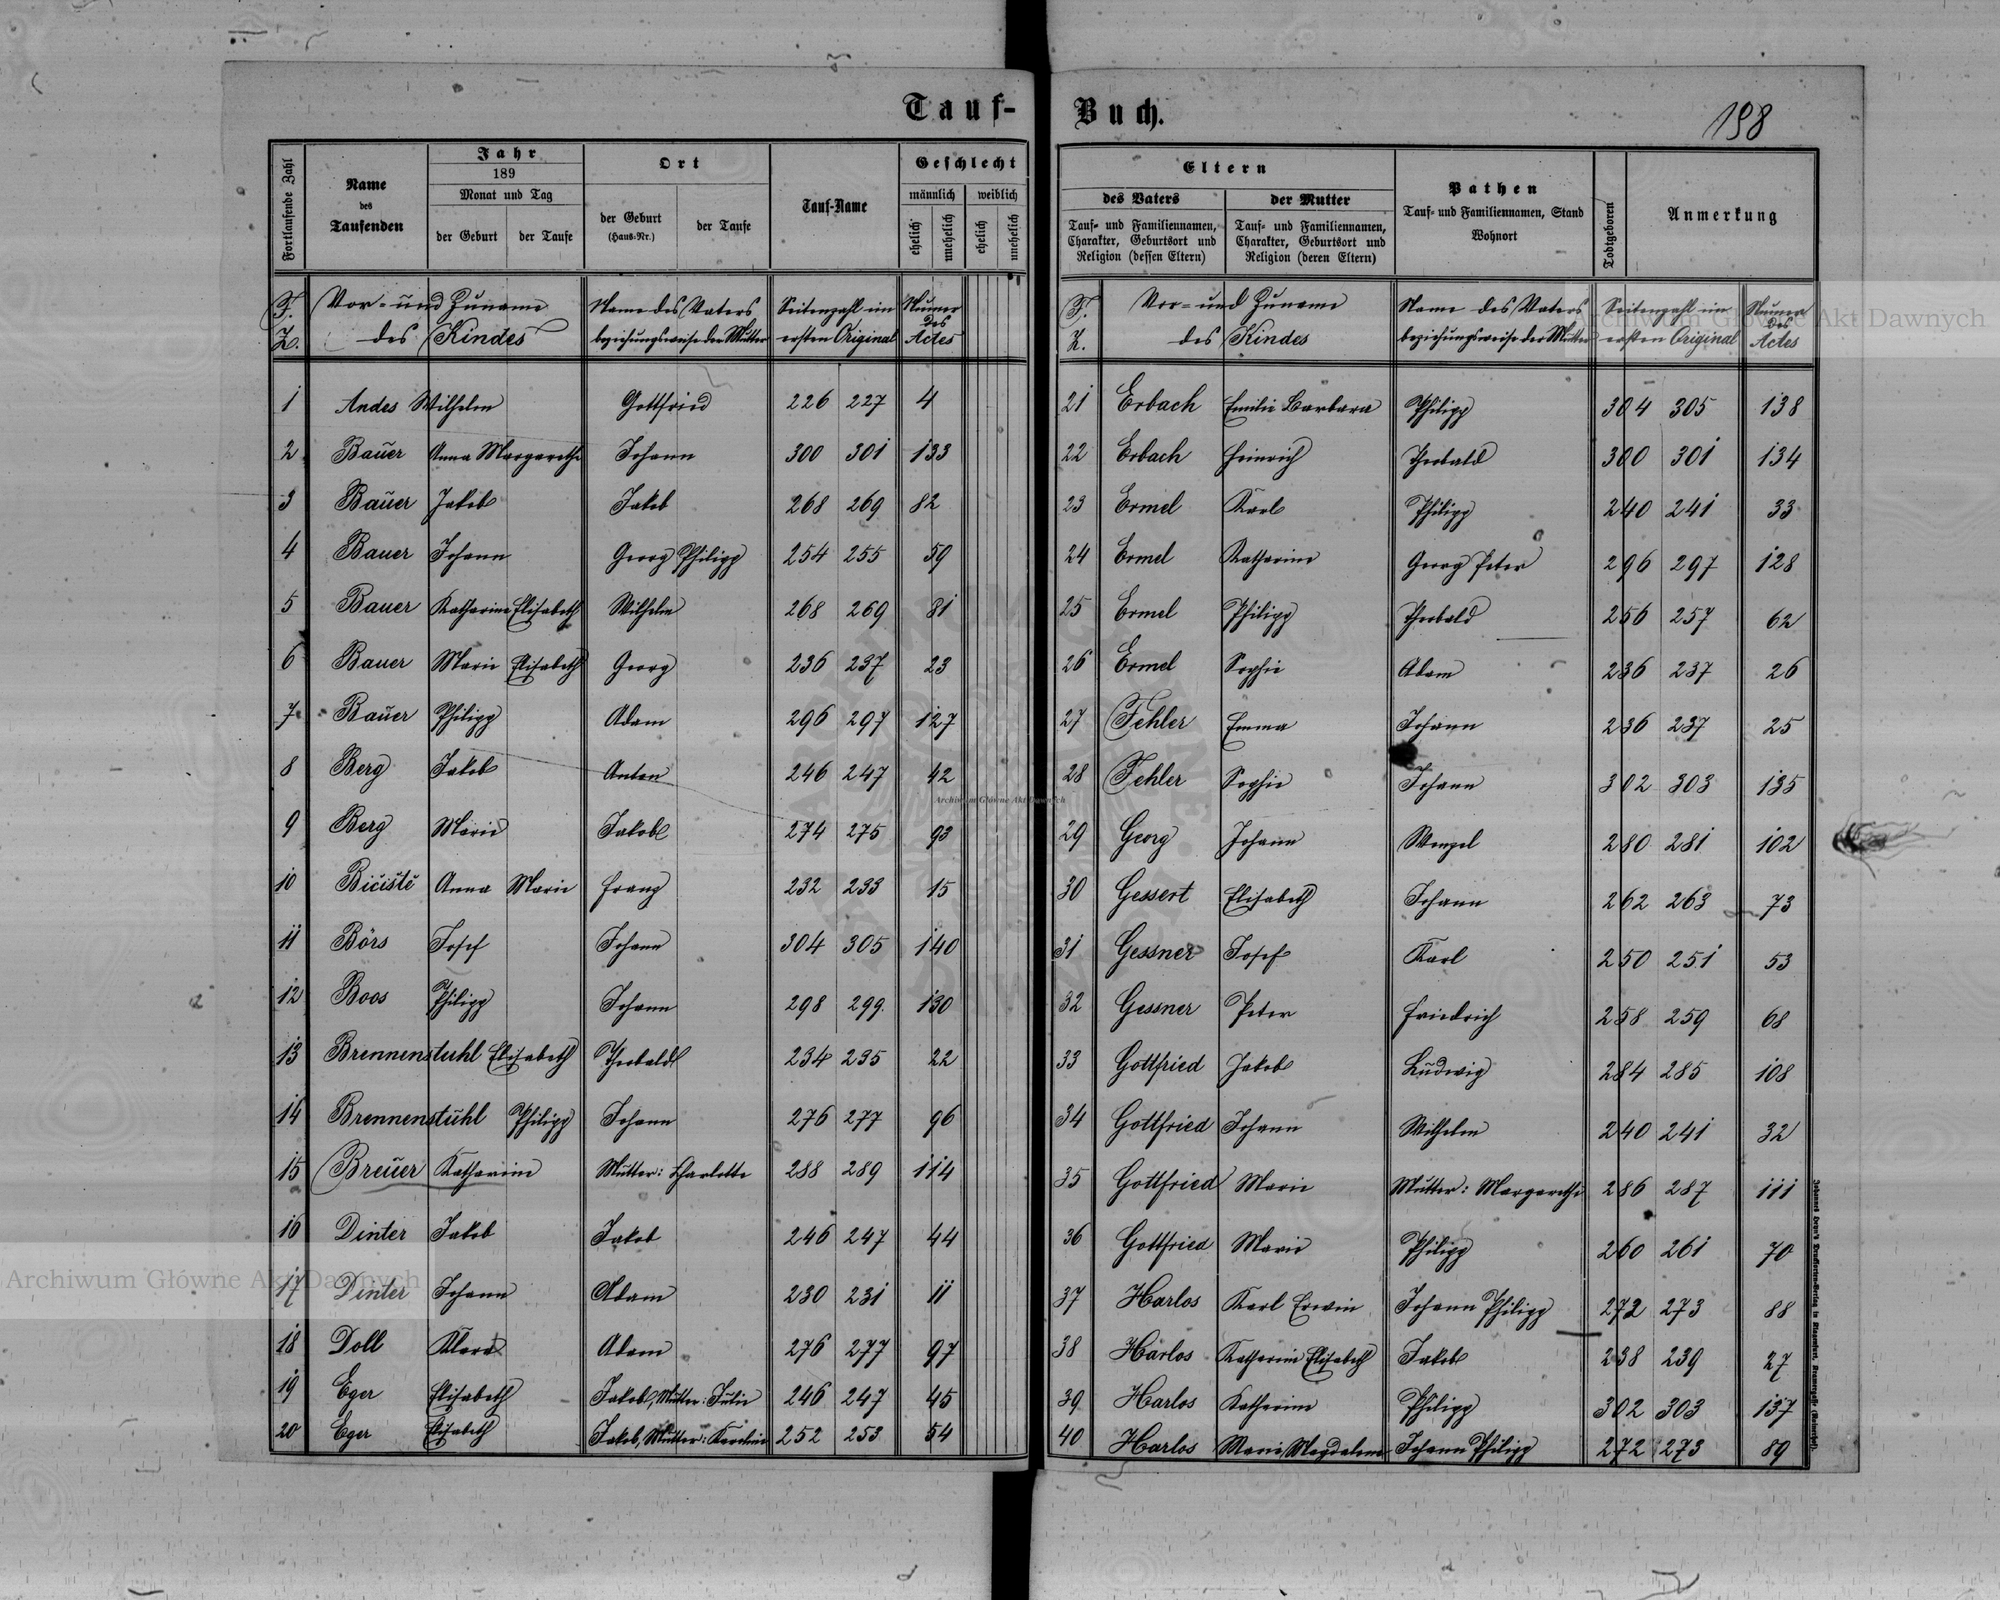 Tauf-
Fortlaufende Zahl
Name
des
Taufenden
Jahr
189
Monat und Tag
der Geburt
der Taufe
Ort
der Geburt
(Haus-Nr.)
der Taufe
Tauf-Name
Geschlecht
männlich weiblich
ehelich unehelich ehelich unehelich
F. Z. Vor- und Zuname des Kindes Name des Vaters beziehungsweise der Mutter Seitenzahl im ersten Original Numer des Actes
1 Andes Wilhelm Gottfried 226 227 4
2 Bauer Anna Margarethe Johann 300 301 133
3 Bauer Jakob Jakob 268 269 82
4 Bauer Johann Georg Philipp 254 255 59
5 Bauer Katharine Elisabeth Wilhelm 268 269 81
6 Bauer Marie Elisabeth Georg 236 237 23
7 Bauer Philipp Adam 296 297 127
8 Berg Jakob Anton 246 247 42
9 Berg Marie Jakob 274 275 93
10 Bičiště Anna Marie Franz 232 233 15
11 Börs Josef Johann 304 305 140
12 Boos Philipp Johann 298 299 130
13 Brennenstuhl Elisabeth Theobald 234 235 22
14 Brennenstuhl Philipp Johann 276 277 96
15 Breuer Katharine Mutter: Charlotte 288 289 114
16 Dinter Jakob Jakob 246 247 44
17 Dinter Johann Adam 230 231 11
18 Doll Klara Adam 276 277 97
19 Eger Elisabeth Jakob, Mutter: Julie 246 247 45
20 Eger Elisabeth Jakob, Mutter: Karoline 252 253 54
Buch.
198
Eltern
des Vaters
Tauf- und Familiennamen,
Charakter, Geburtsort und
Religion (dessen Eltern)
der Mutter
Tauf- und Familiennamen,
Charakter, Geburtsort und
Religion (deren Eltern)
Pathen
Tauf- und Familiennamen, Stand
Wohnort
Todtgeboren
Anmerkung
F. Z. Vor- und Zuname des Kindes Name des Vaters beziehungsweise der Mutter Seitenzahl im ersten Original Numer des Actes
21 Erbach Emilie Barbara Philipp 304 305 138
22 Erbach Heinrich Theobald 300 301 134
23 Ermel Karl Philipp 240 241 33
24 Ermel Katharine Georg Peter 296 297 128
25 Ermel Philipp Theobald 256 257 62
26 Ermel Sophie Adam 236 237 26
27 Fehler Emma Johann 236 237 25
28 Fehler Sophie Johann 302 303 135
29 Georg Johann Wenzel 280 281 102
30 Gessert Elisabeth Johann 262 263 73
31 Gessner Josef Karl 250 251 53
32 Gessner Peter Friedrich 258 259 68
33 Gottfried Jakob Ludwig 284 285 108
34 Gottfried Johann Wilhelm 240 241 32
35 Gottfried Marie Mutter: Margarethe 286 287 111
36 Gottfried Marie Philipp 260 261 70
37 Harlos Karl Erwin Johann Philipp 272 273 88
38 Harlos Katharine Elisabeth Jakob 238 239 27
39 Harlos Katharine Philipp 302 303 137
40 Harlos Marie Magdalena Johann Philipp 272 273 89
Archiwum Główne Akt Dawnych
Archiwum Główne Akt Dawnych
Archiwum Główne Akt Dawnych